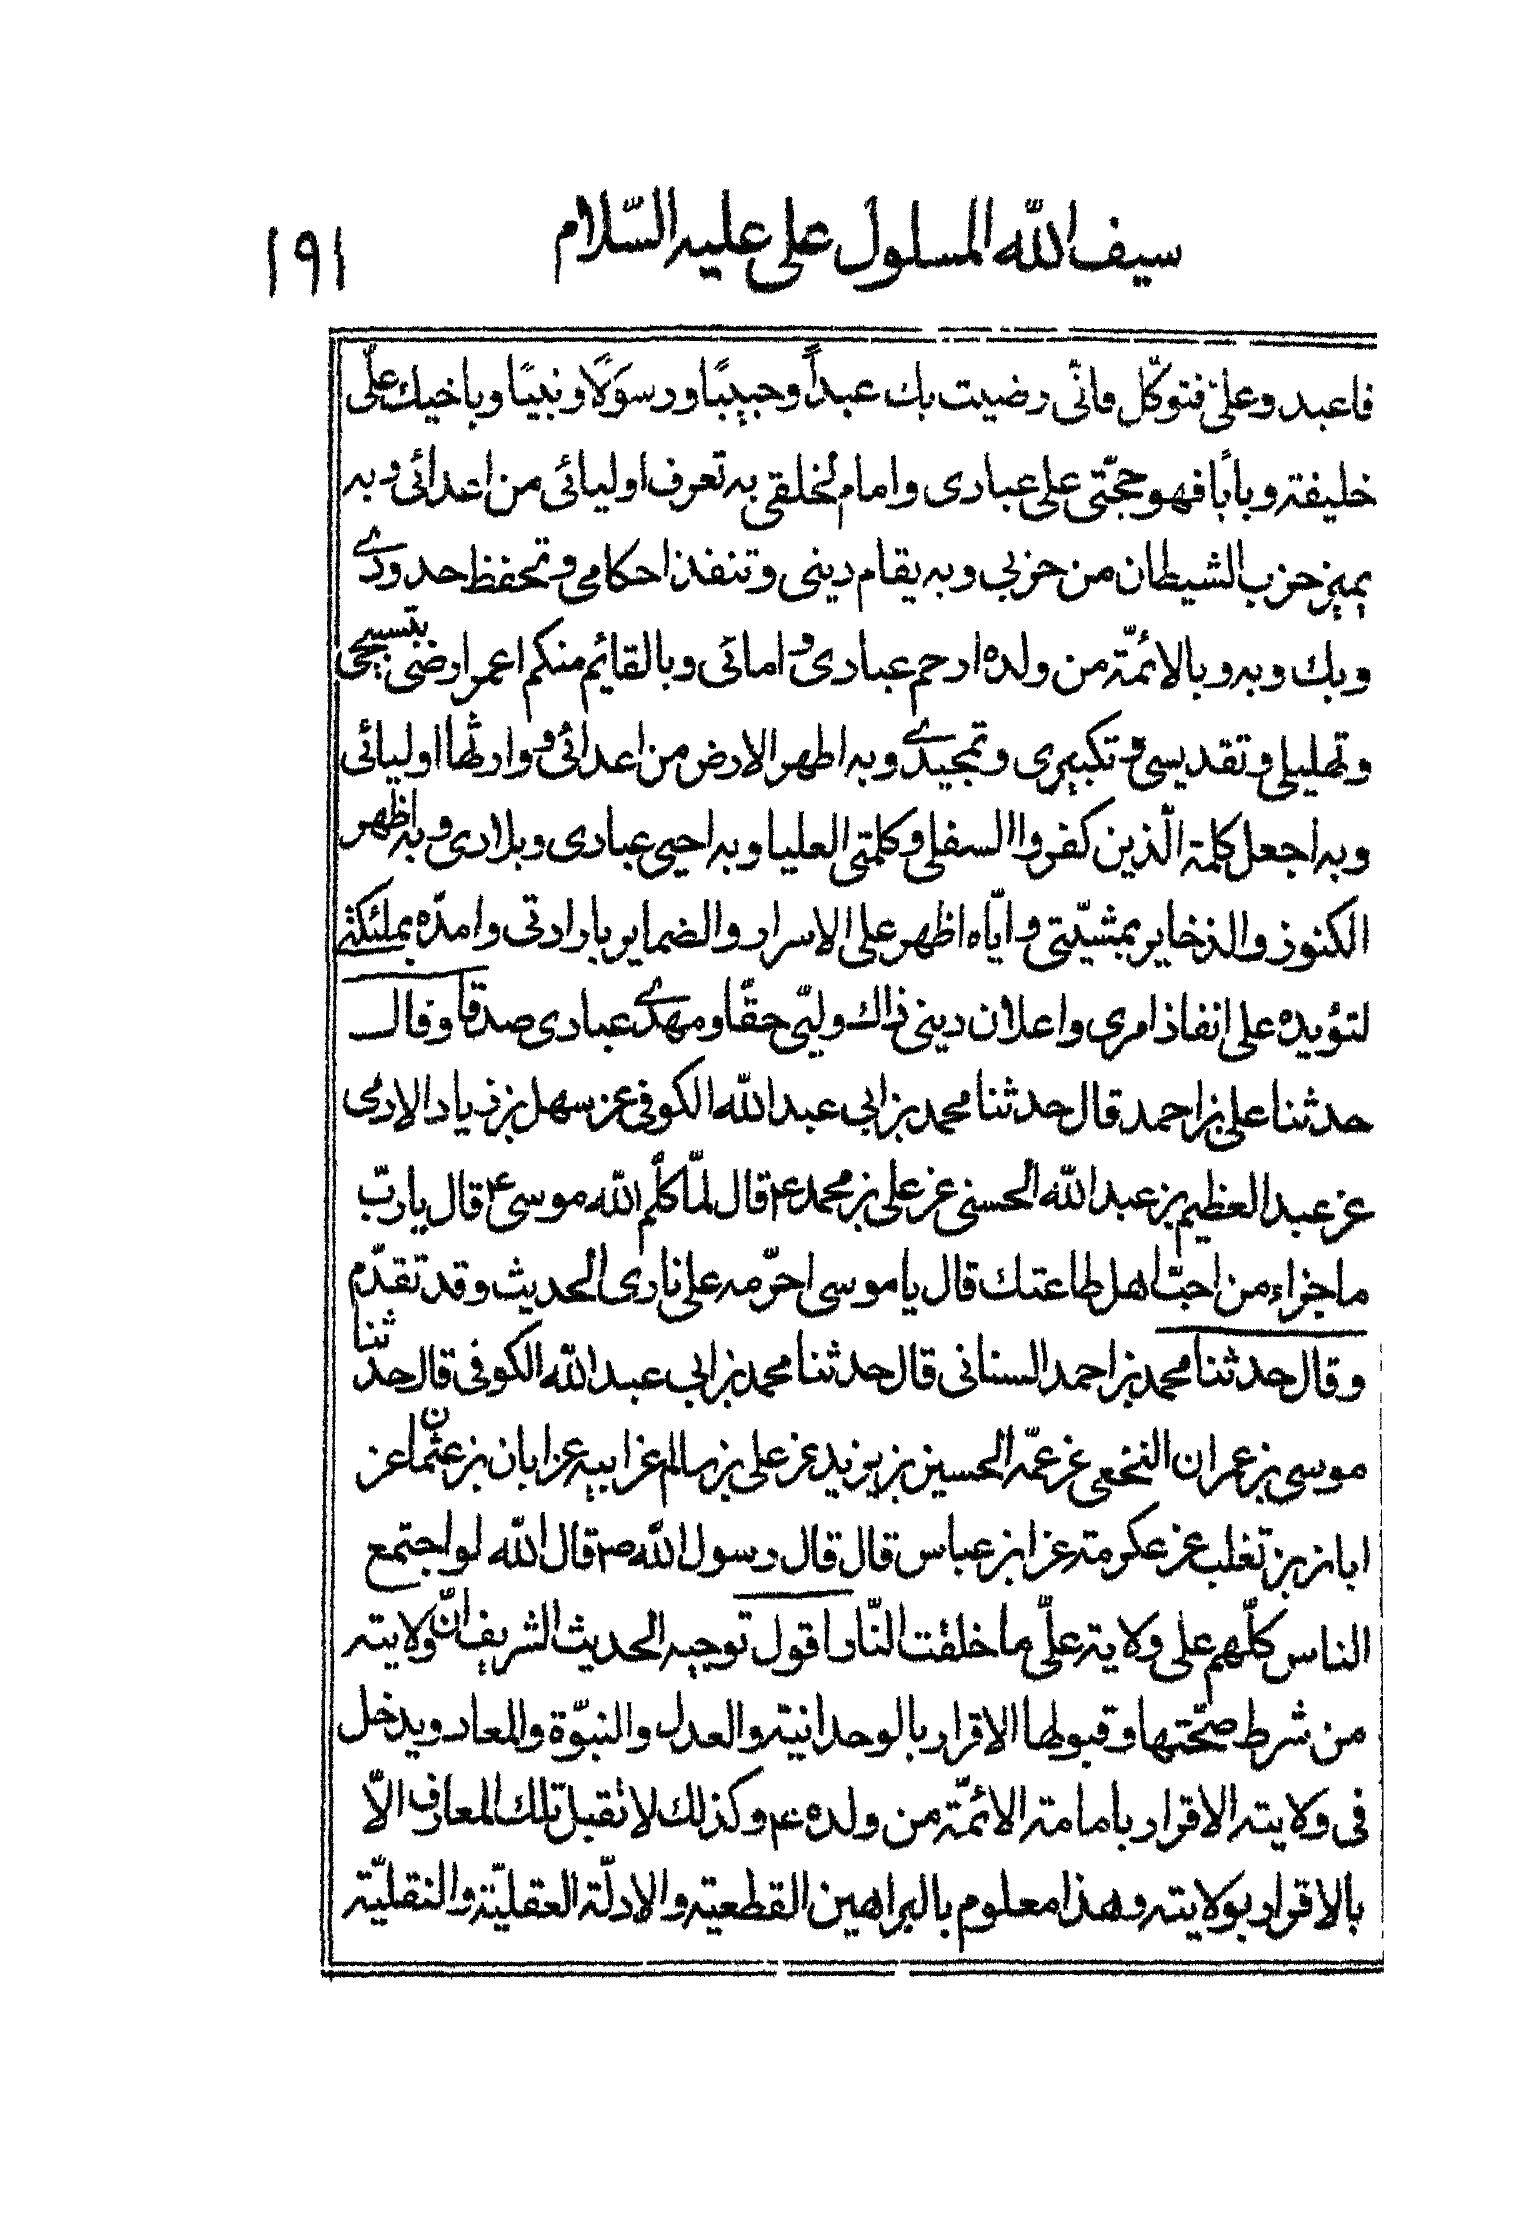 سيف الله المسلول علی عليه السّلام
١٩١
فاعبد وعلیّ فتوكّل فانّی رضيت بك عبداً وحبيبًا ورسولًا ونبيًا وباخيك علیّ
خليفة وبابًا فهو حجّتی علی عبادی وامام لخلقی به تعرف اوليائی من اعدائی وبه
يميز حزب الشيطان من حزبی وبه يقام دينی وتنفذ احكامی وتحفظ حدودی
وبك وبه وبالائمّة من ولده ارحم عبادی و امائی وبالقايم منكم اعمر ارضی بتسبيحی
وتهليلی وتقديسی و تكبيری وتمجيدی وبه اطهر الارض من اعدائی و وارثها اوليائی
وبه اجعل كلمة الّذين كفروا السفلی وكلمتی العليا وبه احيی عبادی وبلادی و به اظهر
الكنوز والذخاير بمشيّتی و ايّاه اظهر علی الاسرار والضماير بارادتی وامدّه بملئكتی
لتؤيده علی انفاذ امری واعلان دينی ذاك وليّی حقّا ومهدی عبادی صدقا وقال
حدثنا علی بن احمد قال حدثنا محمد بن ابی عبد الله الكوفی عن سهل بن زياد الادمی
عن عبد العظيم بن عبد الله الحسنی عن علی بن محمد ع قال لمّا كلّم الله موسی ع قال يا ربّ
ما جزاء من احبّ اهل طاعتك قال يا موسی احرّمه علی ناری الحديث وقد تقدّم
وقال حدثنا محمد بن احمد السنانی قال حدثنا محمد بن ابی عبد الله الكوفی قال حدثنا
موسی بن عمران النخعی عن عمّه الحسين بن يزيد عن علی بن سالم عن ابيه عن ابان بن عثمان عن
ابان بن تغلب عن عكرمة عن ابن عباس قال قال رسول الله ص قال الله لو اجتمع
الناس كلّهم علی ولاية علیّ ما خلقت النّار اقول توجيه الحديث الشريف انّ ولايته
من شرط صحّتها وقبولها الاقرار بالوحدانية والعدل والنبوّة والمعاد ويدخل
فی ولايته الاقرار بامامة الائمّة من ولده ع وكذلك لا تقبل تلك المعارف الّا
بالاقرار بولايته وهذا معلوم بالبراهين القطعية والادلّة العقليّة والنقليّة